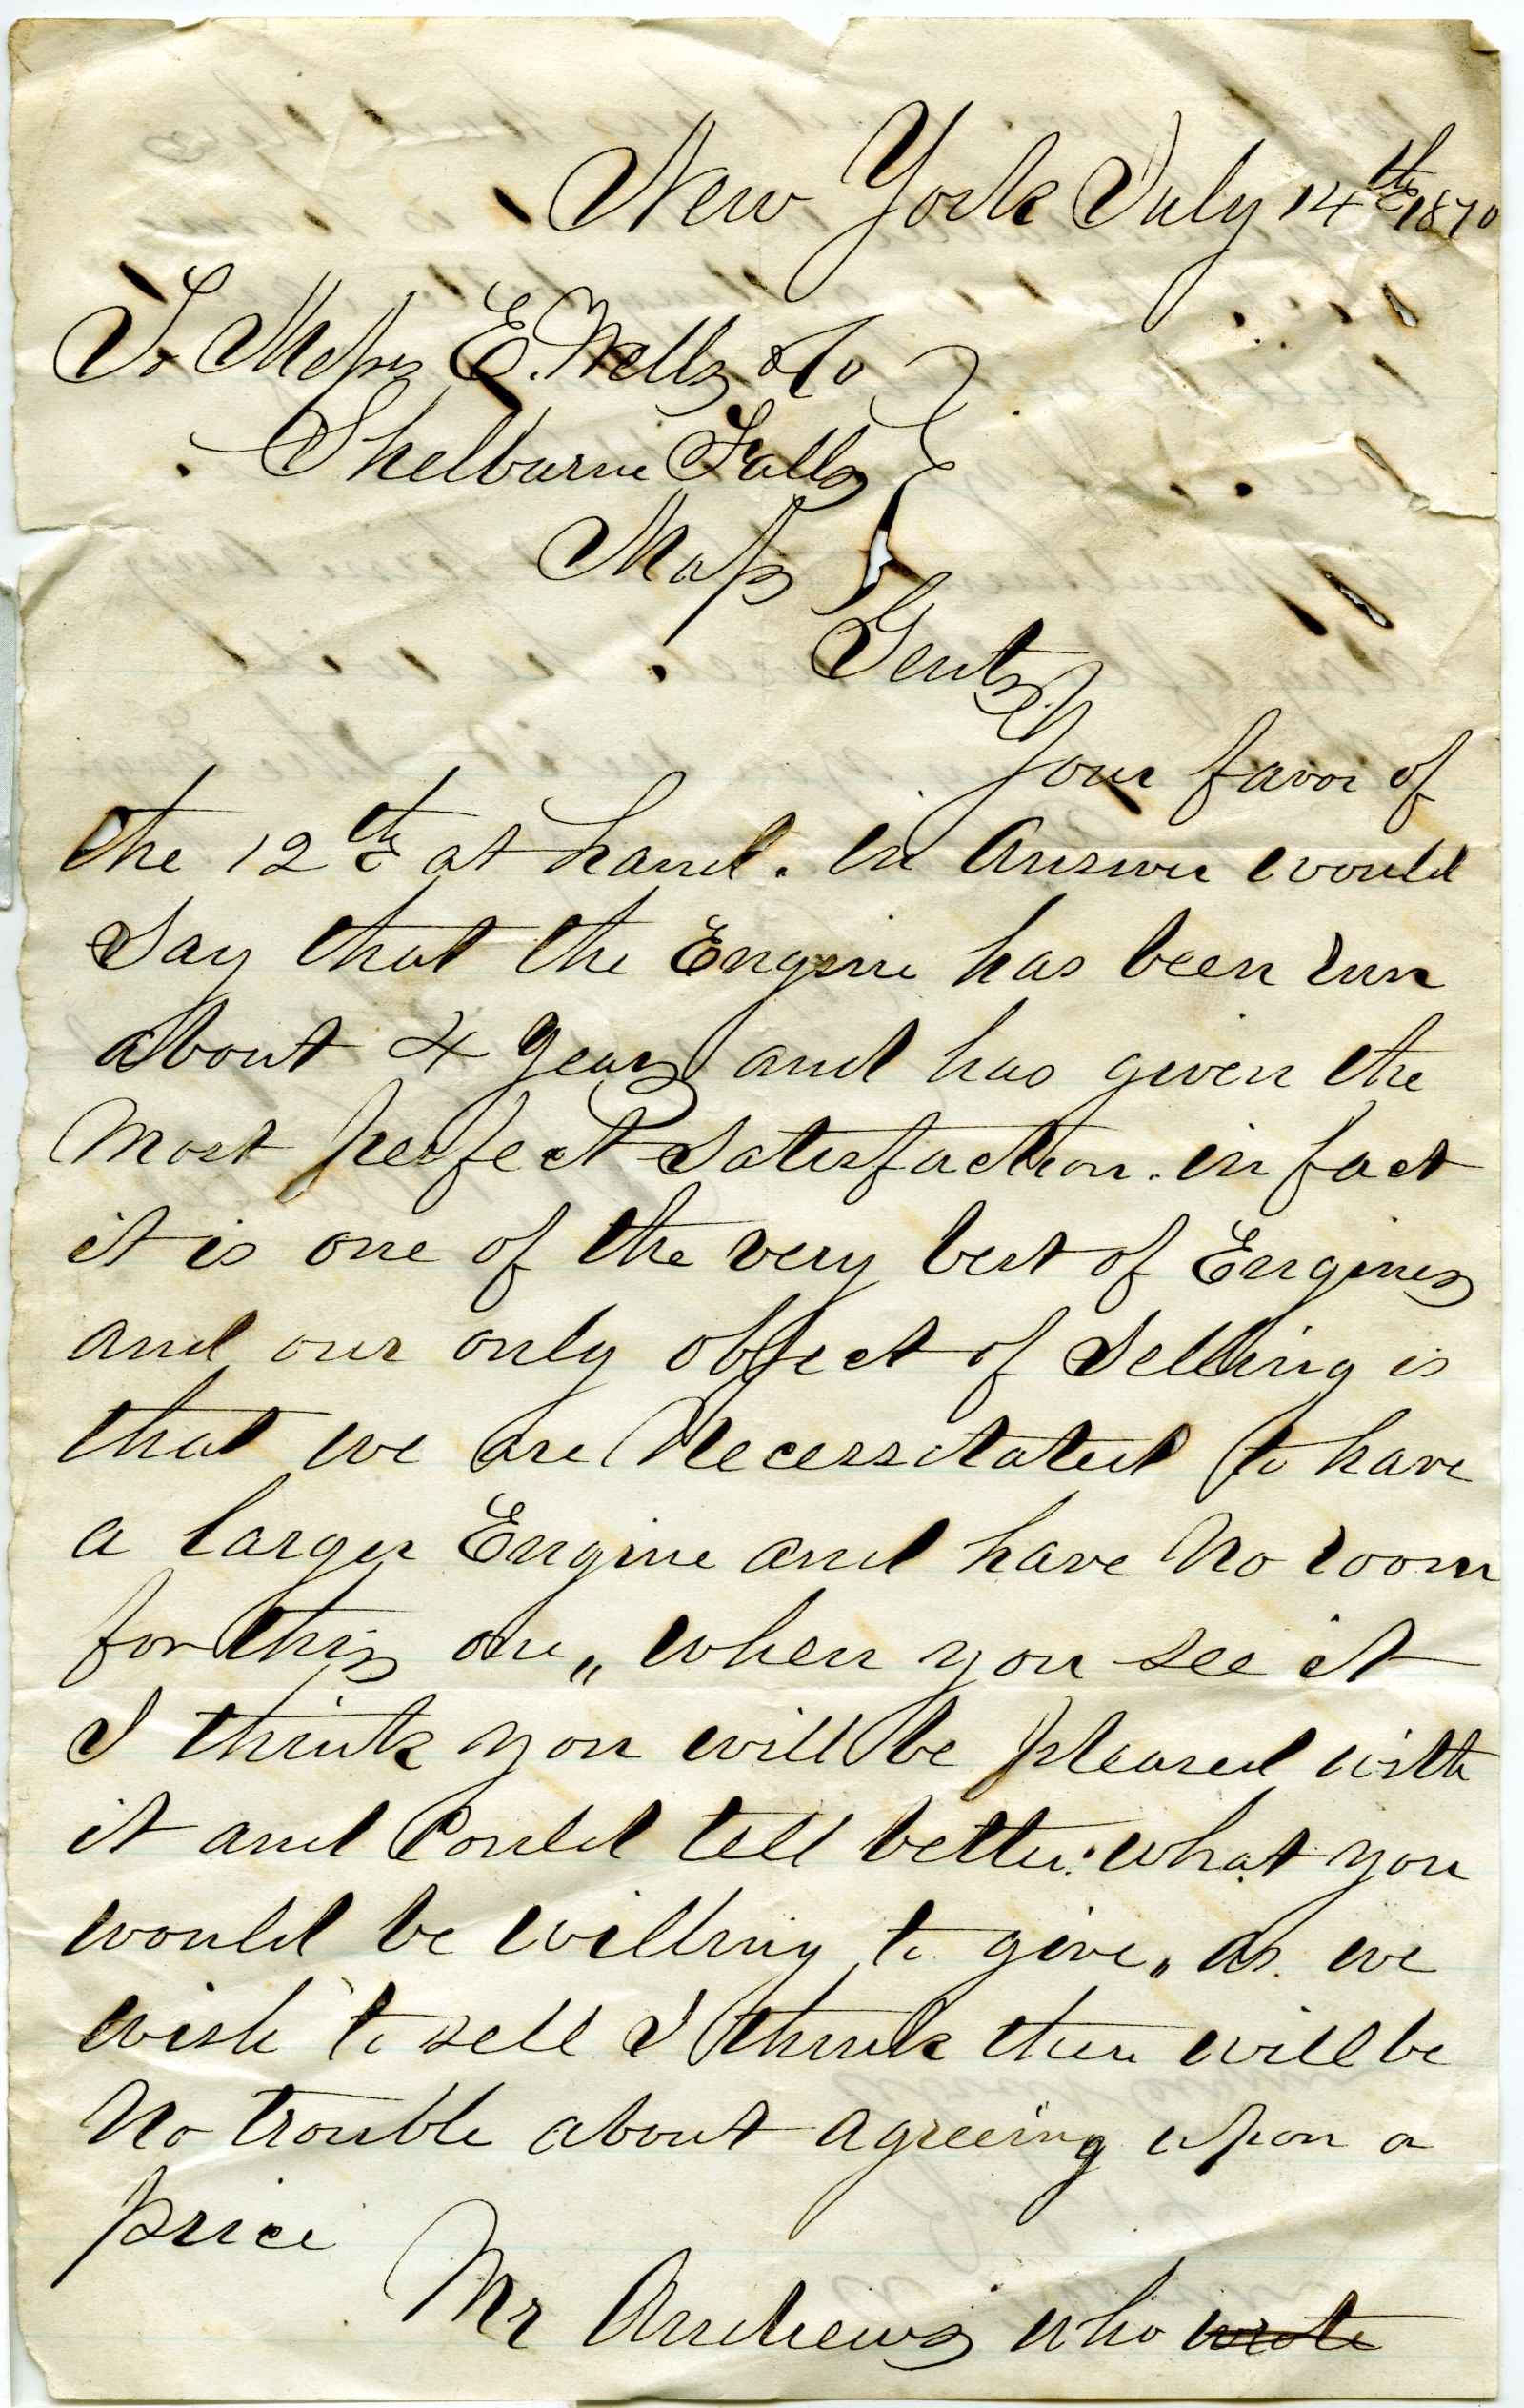 New York July 14th 1870
To Messrs E. Wells & Co
Shelburne Falls
Mass
Gents
Your favor of
the 12th at hand. in Answer would
Say that the Engine has been run
about 4 Years and has given the
Most perfect Satisfaction. in fact
it is one of the very best of Engines
and our only object of Selling is
that we are Necessitated to have
a larger Engine and have No room
for this one,, when you see it
I think you will be pleased with
it and Could tell better what you
would be willing to give,, as we
wish to sell I think there will be
No trouble about agreeing upon a
price
Mr Andrews who wrote